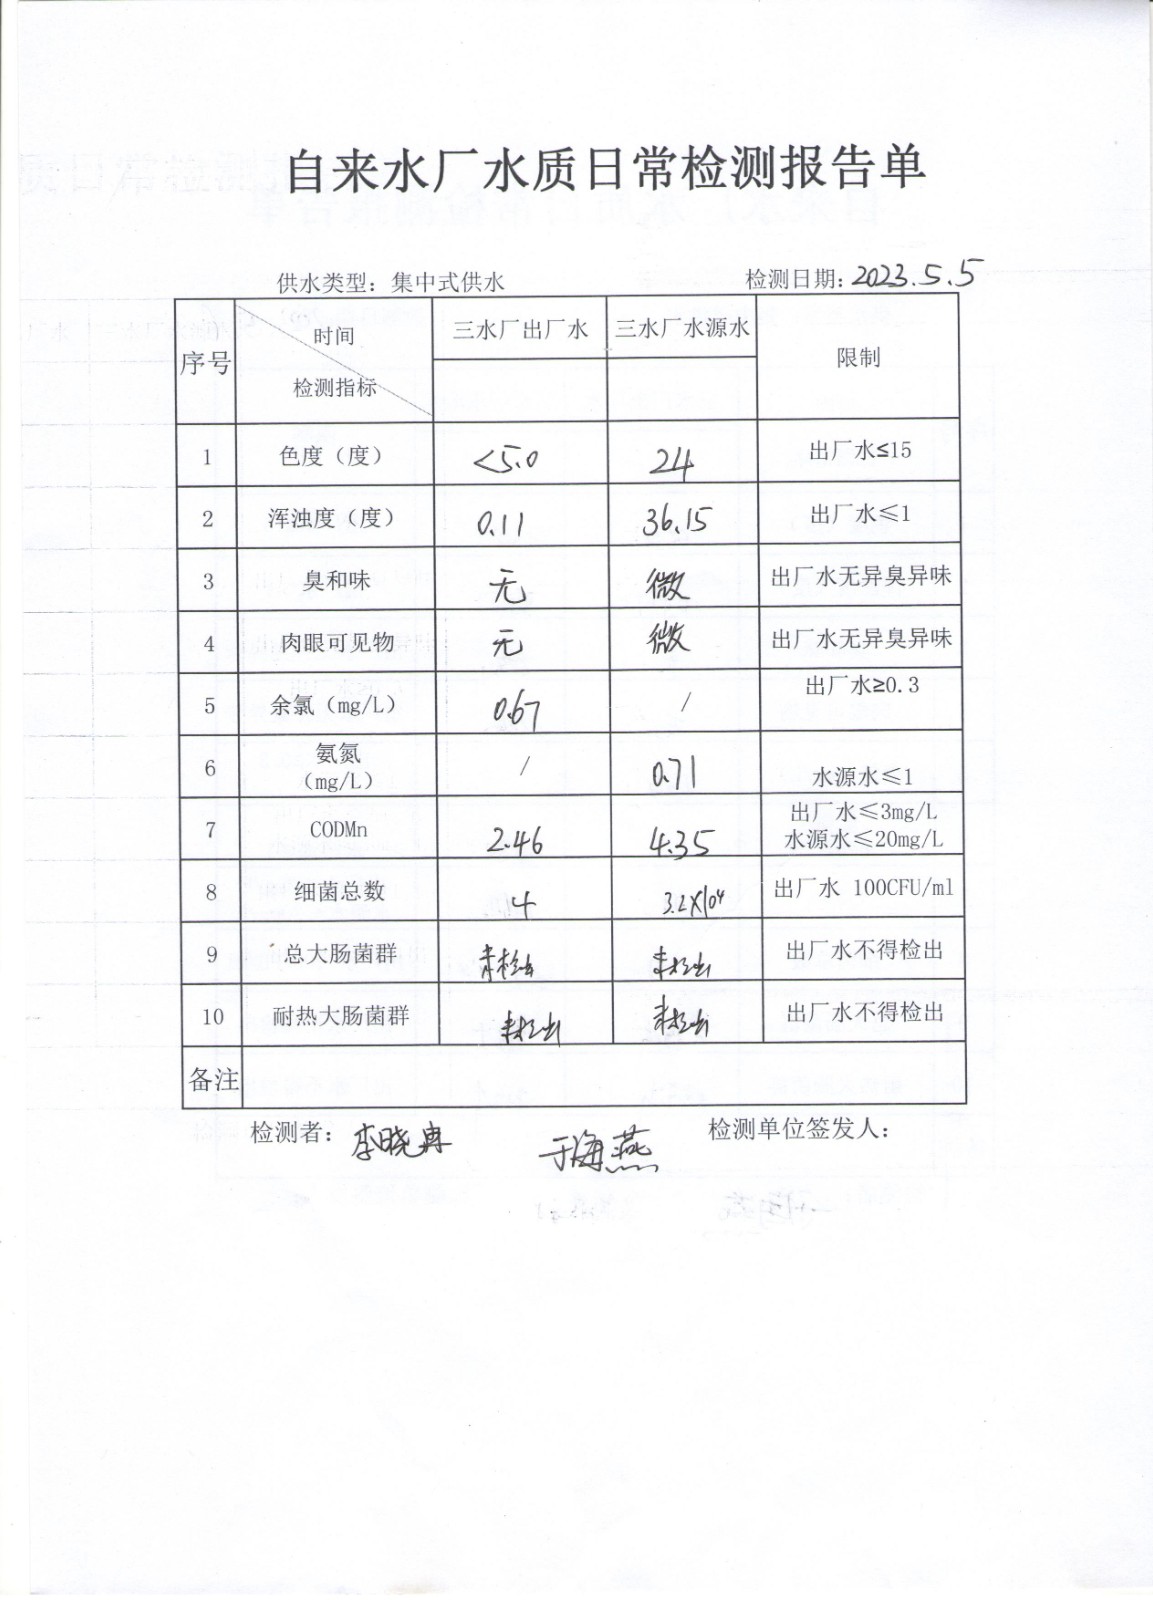 自来水厂水质日常检测报告单
供水类型：集中式供水 检测日期：2023.5.5
序号 时间 检测指标 三水厂出厂水 三水厂水源水 限制
1 色度（度） <5.0 24 出厂水≤15
2 浑浊度（度） 0.11 36.15 出厂水≤1
3 臭和味 无 微 出厂水无异臭异味
4 肉眼可见物 无 微 出厂水无异臭异味
5 余氯（mg/L） 0.67 / 出厂水≥0.3
6 氨氮（mg/L） / 0.71 水源水≤1
7 CODMn 2.46 4.35 出厂水≤3mg/L 水源水≤20mg/L
8 细菌总数 4 3.2×10⁴ 出厂水 100CFU/ml
9 总大肠菌群 未检出 未检出 出厂水不得检出
10 耐热大肠菌群 未检出 未检出 出厂水不得检出
备注
检测者：李晓冉 于海燕 检测单位签发人：